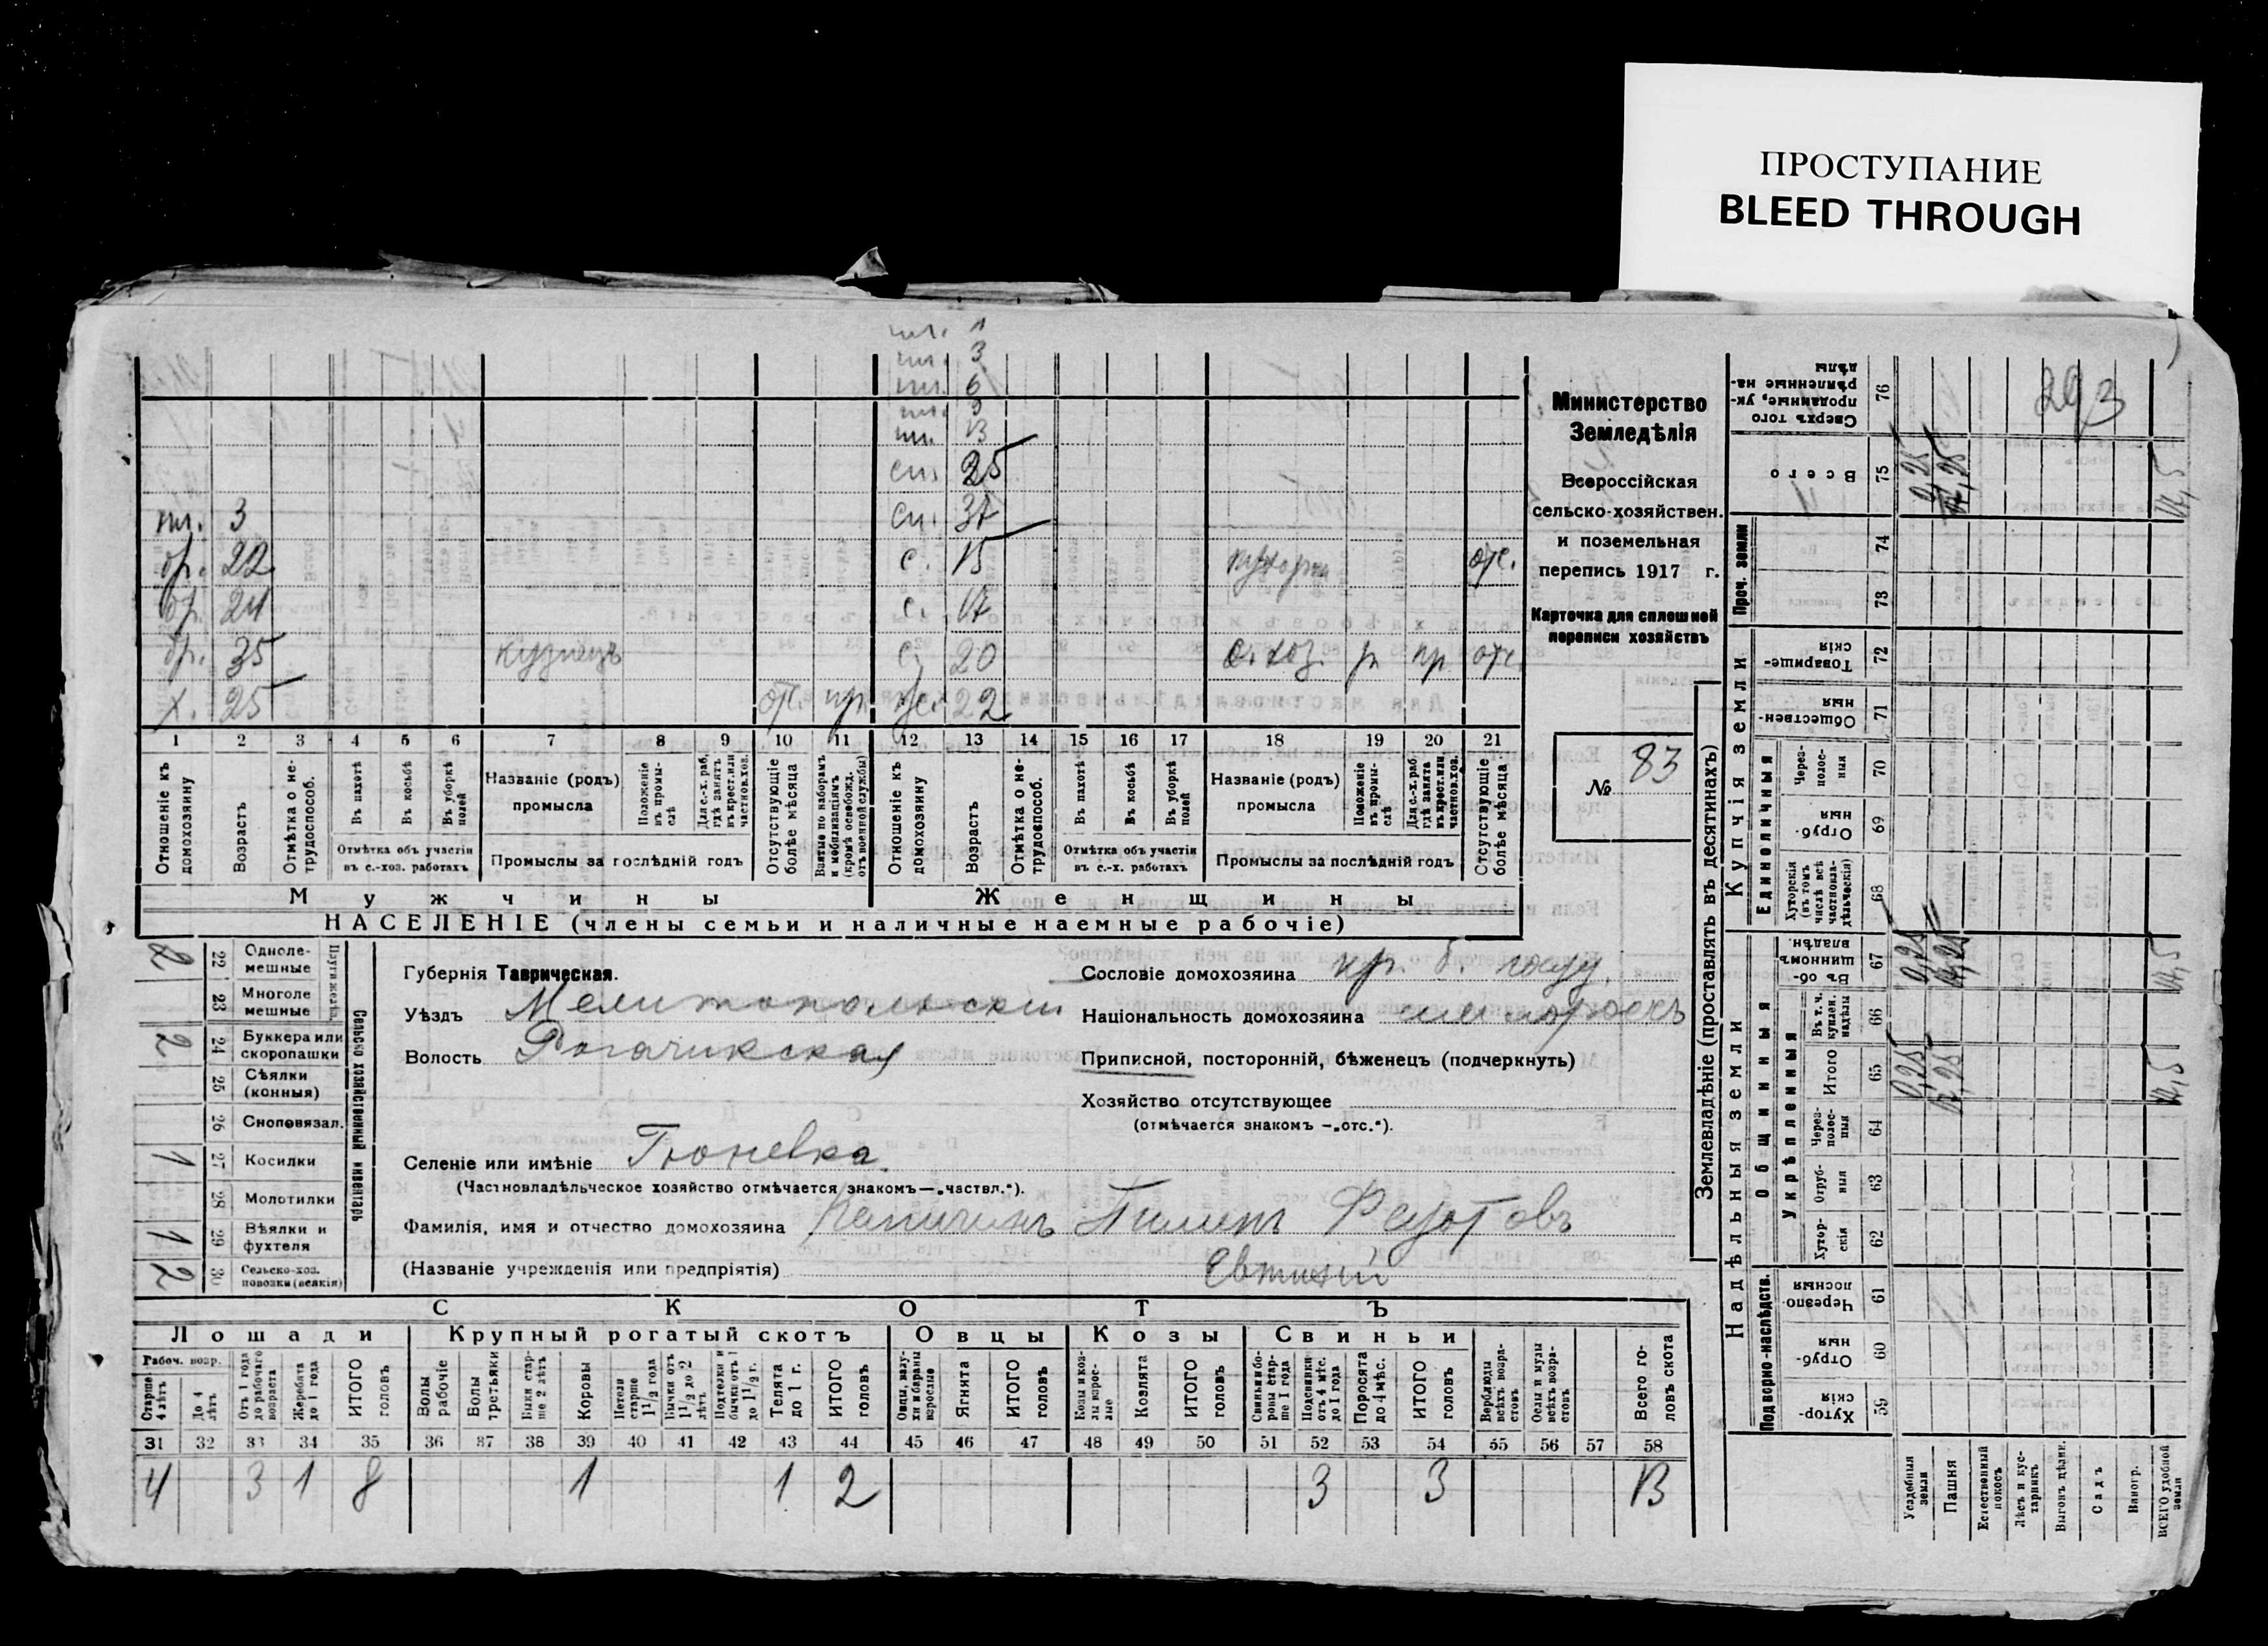 ПРОСТУПАНИЕ
BLEED THROUGH
пл. 3
пл. 6
пл. 9
пл. 13
сн. 25
пл. 3 сн. 37
бр. 22 с. 15 отс.
бр. 24 с. 17
бр. 35 кузнецъ с. 20 с. хоз. р пр отс.
х. 25 отс. пр. ж. 22
1 2 3 4 5 6 7 8 9 10 11 12 13 14 15 16 17 18 19 20 21
Отношеніе къ домохозяину
Возрастъ
Отмѣтка о нетрудоспособ.
Въ пахотѣ
Въ косьбѣ
Въ уборкѣ полей
Отмѣтка объ участіи въ с.-хоз. работахъ
Названіе (родъ) промысла
Положеніе въ промыслѣ
Для с.-х. раб. гдѣ занятъ въ крест. или частнов. хоз.
Промыслы за послѣдній годъ
Отсутствующіе болѣе мѣсяца
Взятые по наборамъ и мобилизаціямъ (кромѣ освобожд. отъ военной службы)
Отношеніе къ домохозяину
Возрастъ
Отмѣтка о нетрудоспособ.
Въ пахотѣ
Въ косьбѣ
Въ уборкѣ полей
Отмѣтка объ участіи въ с.-х. работахъ
Названіе (родъ) промысла
Положеніе въ промыслѣ
Для с.-х. раб. гдѣ занята въ крест. или частнов. хоз.
Промыслы за послѣдній годъ
Отсутствующіе болѣе мѣсяца
Мужчины Женщины
НАСЕЛЕНІЕ (члены семьи и наличные наемные рабочіе)
Министерство
Земледѣлія
Всероссійская
сельско-хозяйствен.
и поземельная
перепись 1917 г.
Карточка для сплошной
переписи хозяйствъ
№ 83
Сельско хозяйственный инвентарь
Плуги жел.
2 22 Однолемешные
23 Многолемешные
2 24 Буккера или скоропашки
25 Сѣялки (конныя)
26 Сноповязал.
1 27 Косилки
28 Молотилки
1 29 Вѣялки и фухтеля
2 30 Сельско-хоз. повозки (всякія)
Губернія Таврическая.
Уѣздъ Мелитопольскій
Волость Рогачикская
Сословіе домохозяина кр. б.
Національность домохозяина малороссъ
Приписной, посторонній, бѣженецъ (подчеркнуть)
Хозяйство отсутствующее
(отмѣчается знакомъ —„отс.“).
Селеніе или имѣніе Гюневка.
(Частновладѣльческое хозяйство отмѣчается знакомъ—„частвл.“).
Фамилія, имя и отчество домохозяина
(Названіе учрежденія или предпріятія) Евтихій
СКОТЪ
Лошади Крупный рогатый скотъ Овцы Козы Свиньи
Рабоч. возр.
Старше 4 лѣтъ
До 4 лѣтъ
Отъ 1 года до рабочаго возраста
Жеребята до 1 года
ИТОГО головъ
Волы рабочіе
Волы третьяки
Быки старше 2 лѣтъ
Коровы
Нетели старше 1 1/2 года
Бычки отъ 1 1/2 до 2 лѣтъ
Подтелки и бычки отъ 1 до 1 1/2 г.
Телята до 1 г.
ИТОГО головъ
Овцы, валухи и бараны взрослые
Ягнята
ИТОГО головъ
Козы и козлы взрослые
Козлята
ИТОГО головъ
Свиньи и боровы старше 1 года
Подсвинки отъ 4 мѣс. до 1 года
Поросята до 4 мѣс.
ИТОГО головъ
Верблюды всѣхъ возрастовъ
Ослы и мулы всѣхъ возрастовъ
Всего головъ скота
31 32 33 34 35 36 37 38 39 40 41 42 43 44 45 46 47 48 49 50 51 52 53 54 55 56 57 58
4 3 1 8 1 1 2 3 3 13
Землевладѣніе (проставлять въ десятинахъ)
Надѣльныя земли
Купчія земли
Проч. земли
Подворно-наслѣдств.
Общинныя
Укрѣпленныя
Единоличныя
Сверхъ того проданные, укрѣпленные надѣлы 76
Всего 75 0,25 14,25 14,5
74
73
Товарищескія 72
Общественныя 71
Черезполосныя 70
Отрубныя 69
Хуторскія (въ томъ числѣ всѣ частновладѣльческія) 68
Въ общинномъ владѣн. 67 0,25 14,25 14,5
Въ т. ч. куплен. надѣлы 66
Итого 65 0,25 14,25 14,5
Черезполосныя 64
Отрубныя 63
Хуторскія 62
Черезполосныя 61
Отрубныя 60
Хуторскія 59
Усадебныя земли
Пашня
Естественный покосъ
Лѣсъ и кустарникъ
Выгонъ цѣлин.
Садъ
Виногр.
ВСЕГО удобной земли
293